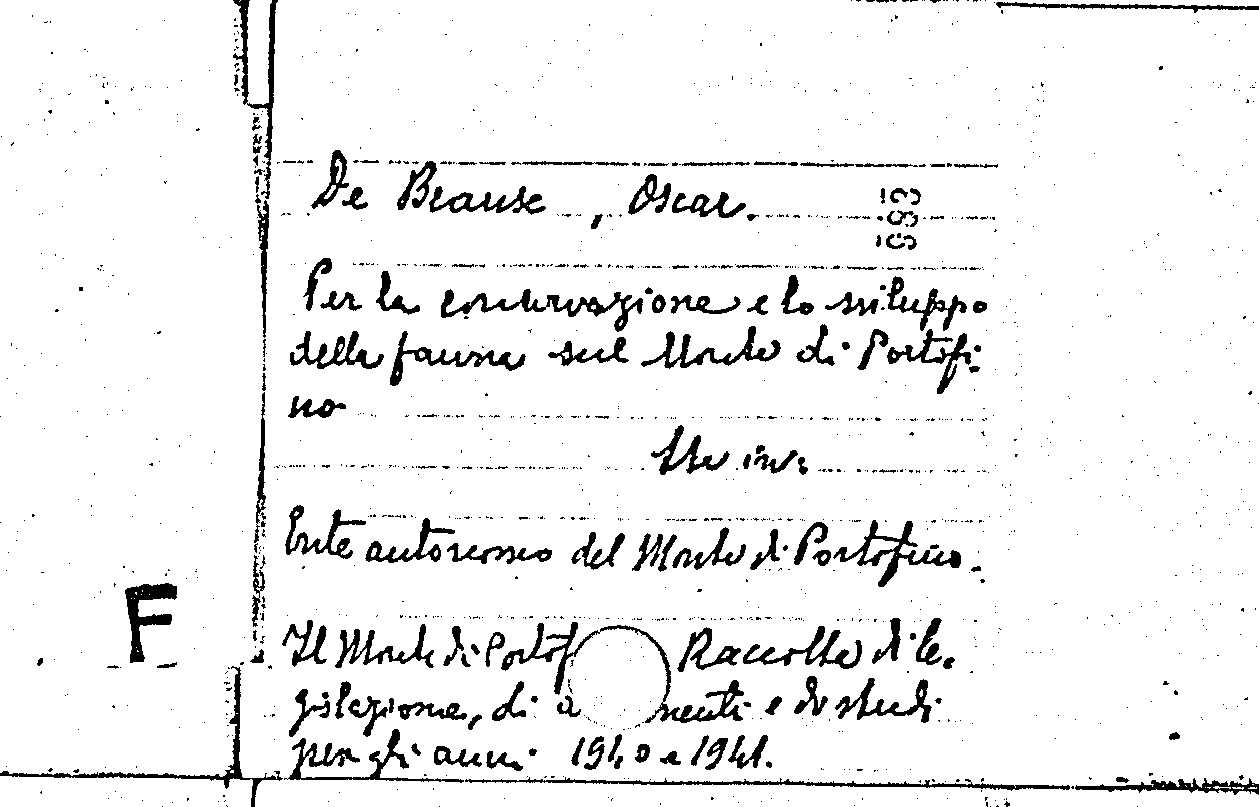 De Beause, Oscar.
Per la conservazione e lo sviluppo
della fauna sul Monte di Portofi-
no
Sta in:
Ente autonomo del Monte di Portofino.
Il Monte di Portof Raccolta di le-
gislazione, di a menti e di studi
per gli anni 1940 e 1941.
F